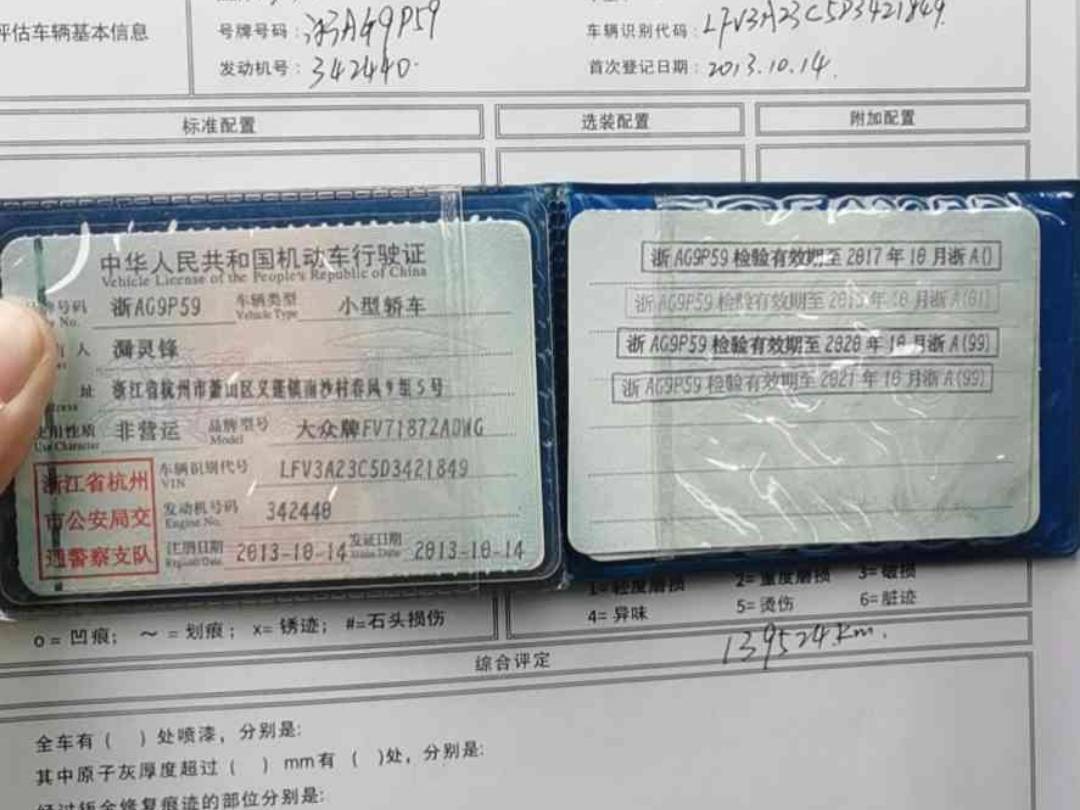 评估车辆基本信息
号牌号码：浙AG9P59
车辆识别代码：LFV3A23C5D3421849
发动机号：342440
首次登记日期：2013.10.14.
标准配置 选装配置 附加配置
中华人民共和国机动车行驶证
Vehicle License of the People's Republic of China
号码 浙AG9P59 车辆类型 小型轿车
No. Vehicle Type
人 灵锋
址 浙江省杭州市萧山区义蓬镇南沙村春风9组5号
使用性质 非营运 品牌型号 大众牌FV71872ADWG
Use Character Model
浙江省杭州市公安局交通警察支队
车辆识别代号 LFV3A23C5D3421849
VIN
发动机号码 342440
Engine No.
注册日期 2013-10-14 发证日期 2013-10-14
Register Date Issue Date
浙AG9P59检验有效期至2017年10月浙A()
浙AG9P59检验有效期至2019年10月浙A(01)
浙AG9P59检验有效期至2020年10月浙A(99)
浙AG9P59检验有效期至2021年10月浙A(99)
o=凹痕；～=划痕；x=锈迹；#=石头损伤
1=轻度磨损 2=重度磨损 3=破损
4=异味 5=烫伤 6=脏迹
综合评定
139524km.
全车有（ ）处喷漆，分别是:
其中原子灰厚度超过（ ）mm有（ )处，分别是:
经过钣金修复痕迹的部位分别是: